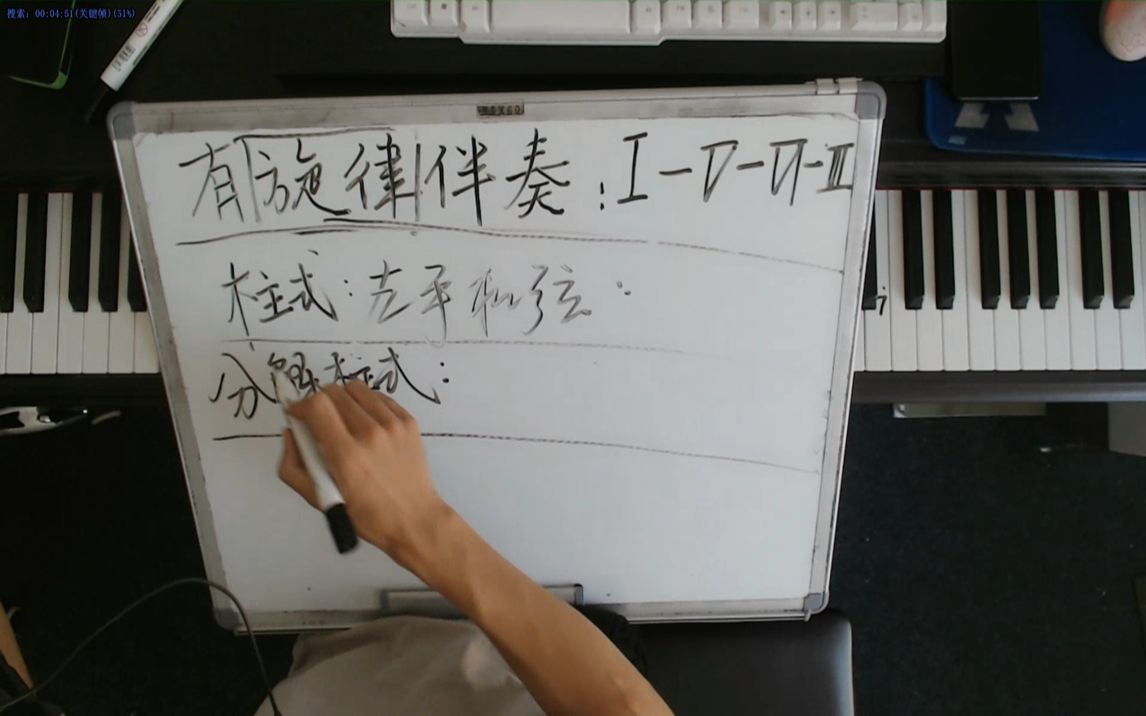 搜索: 00:04:51(关键帧)(51%)
有旋律伴奏:I-V-VI-III
柱式:左手和弦:
分解柱式: